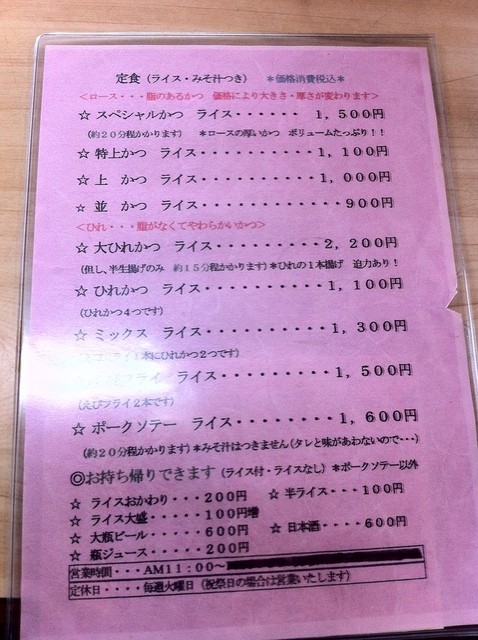 定食（ライス・みそ汁つき）　＊価格消費税込＊
＜ロース・・・脂のあるかつ　価格により大きさ・厚さが変わります＞
☆ スペシャルかつ　ライス・・・・・・　１，５００円
（約２０分程かかります）　＊ロースの厚いかつ　ボリュームたっぷり！！
☆ 特上かつ　ライス・・・・・・・・・・１，１００円
☆ 上　かつ　ライス・・・・・・・・・・１，０００円
☆ 並　かつ　ライス・・・・・・・・・・・９００円
＜ひれ・・・脂がなくてやわらかいかつ＞
☆ 大ひれかつ　ライス・・・・・・・・・２，２００円
（但し、半生揚げのみ　約１５分程かかります）＊ひれの１本揚げ　迫力あり！
☆ ひれかつ　ライス・・・・・・・・・・１，１００円
（ひれかつ４つです）
☆ ミックス　ライス・・・・・・・・・・１，３００円
ライ１本にひれかつ２つです）
フライ　ライス・・・・・・・・・１，５００円
（えびフライ２本です）
☆ ポークソテー　ライス・・・・・・・・・１，６００円
（約２０分程かかります）＊みそ汁はつきません（タレと味があわないので・・・）
◎お持ち帰りできます（ライス付・ライスなし）＊ポークソテー以外
☆ ライスおかわり・・・２００円　☆ 半ライス・・・１００円
☆ ライス大盛・・・・・１００円増
☆ 大瓶ビール・・・・６００円　☆ 日本酒・・・・６００円
☆ 瓶ジュース・・・・２００円
営業時間・・・ＡＭ１１：００～
定休日・・・・毎週火曜日（祝祭日の場合は営業いたします）